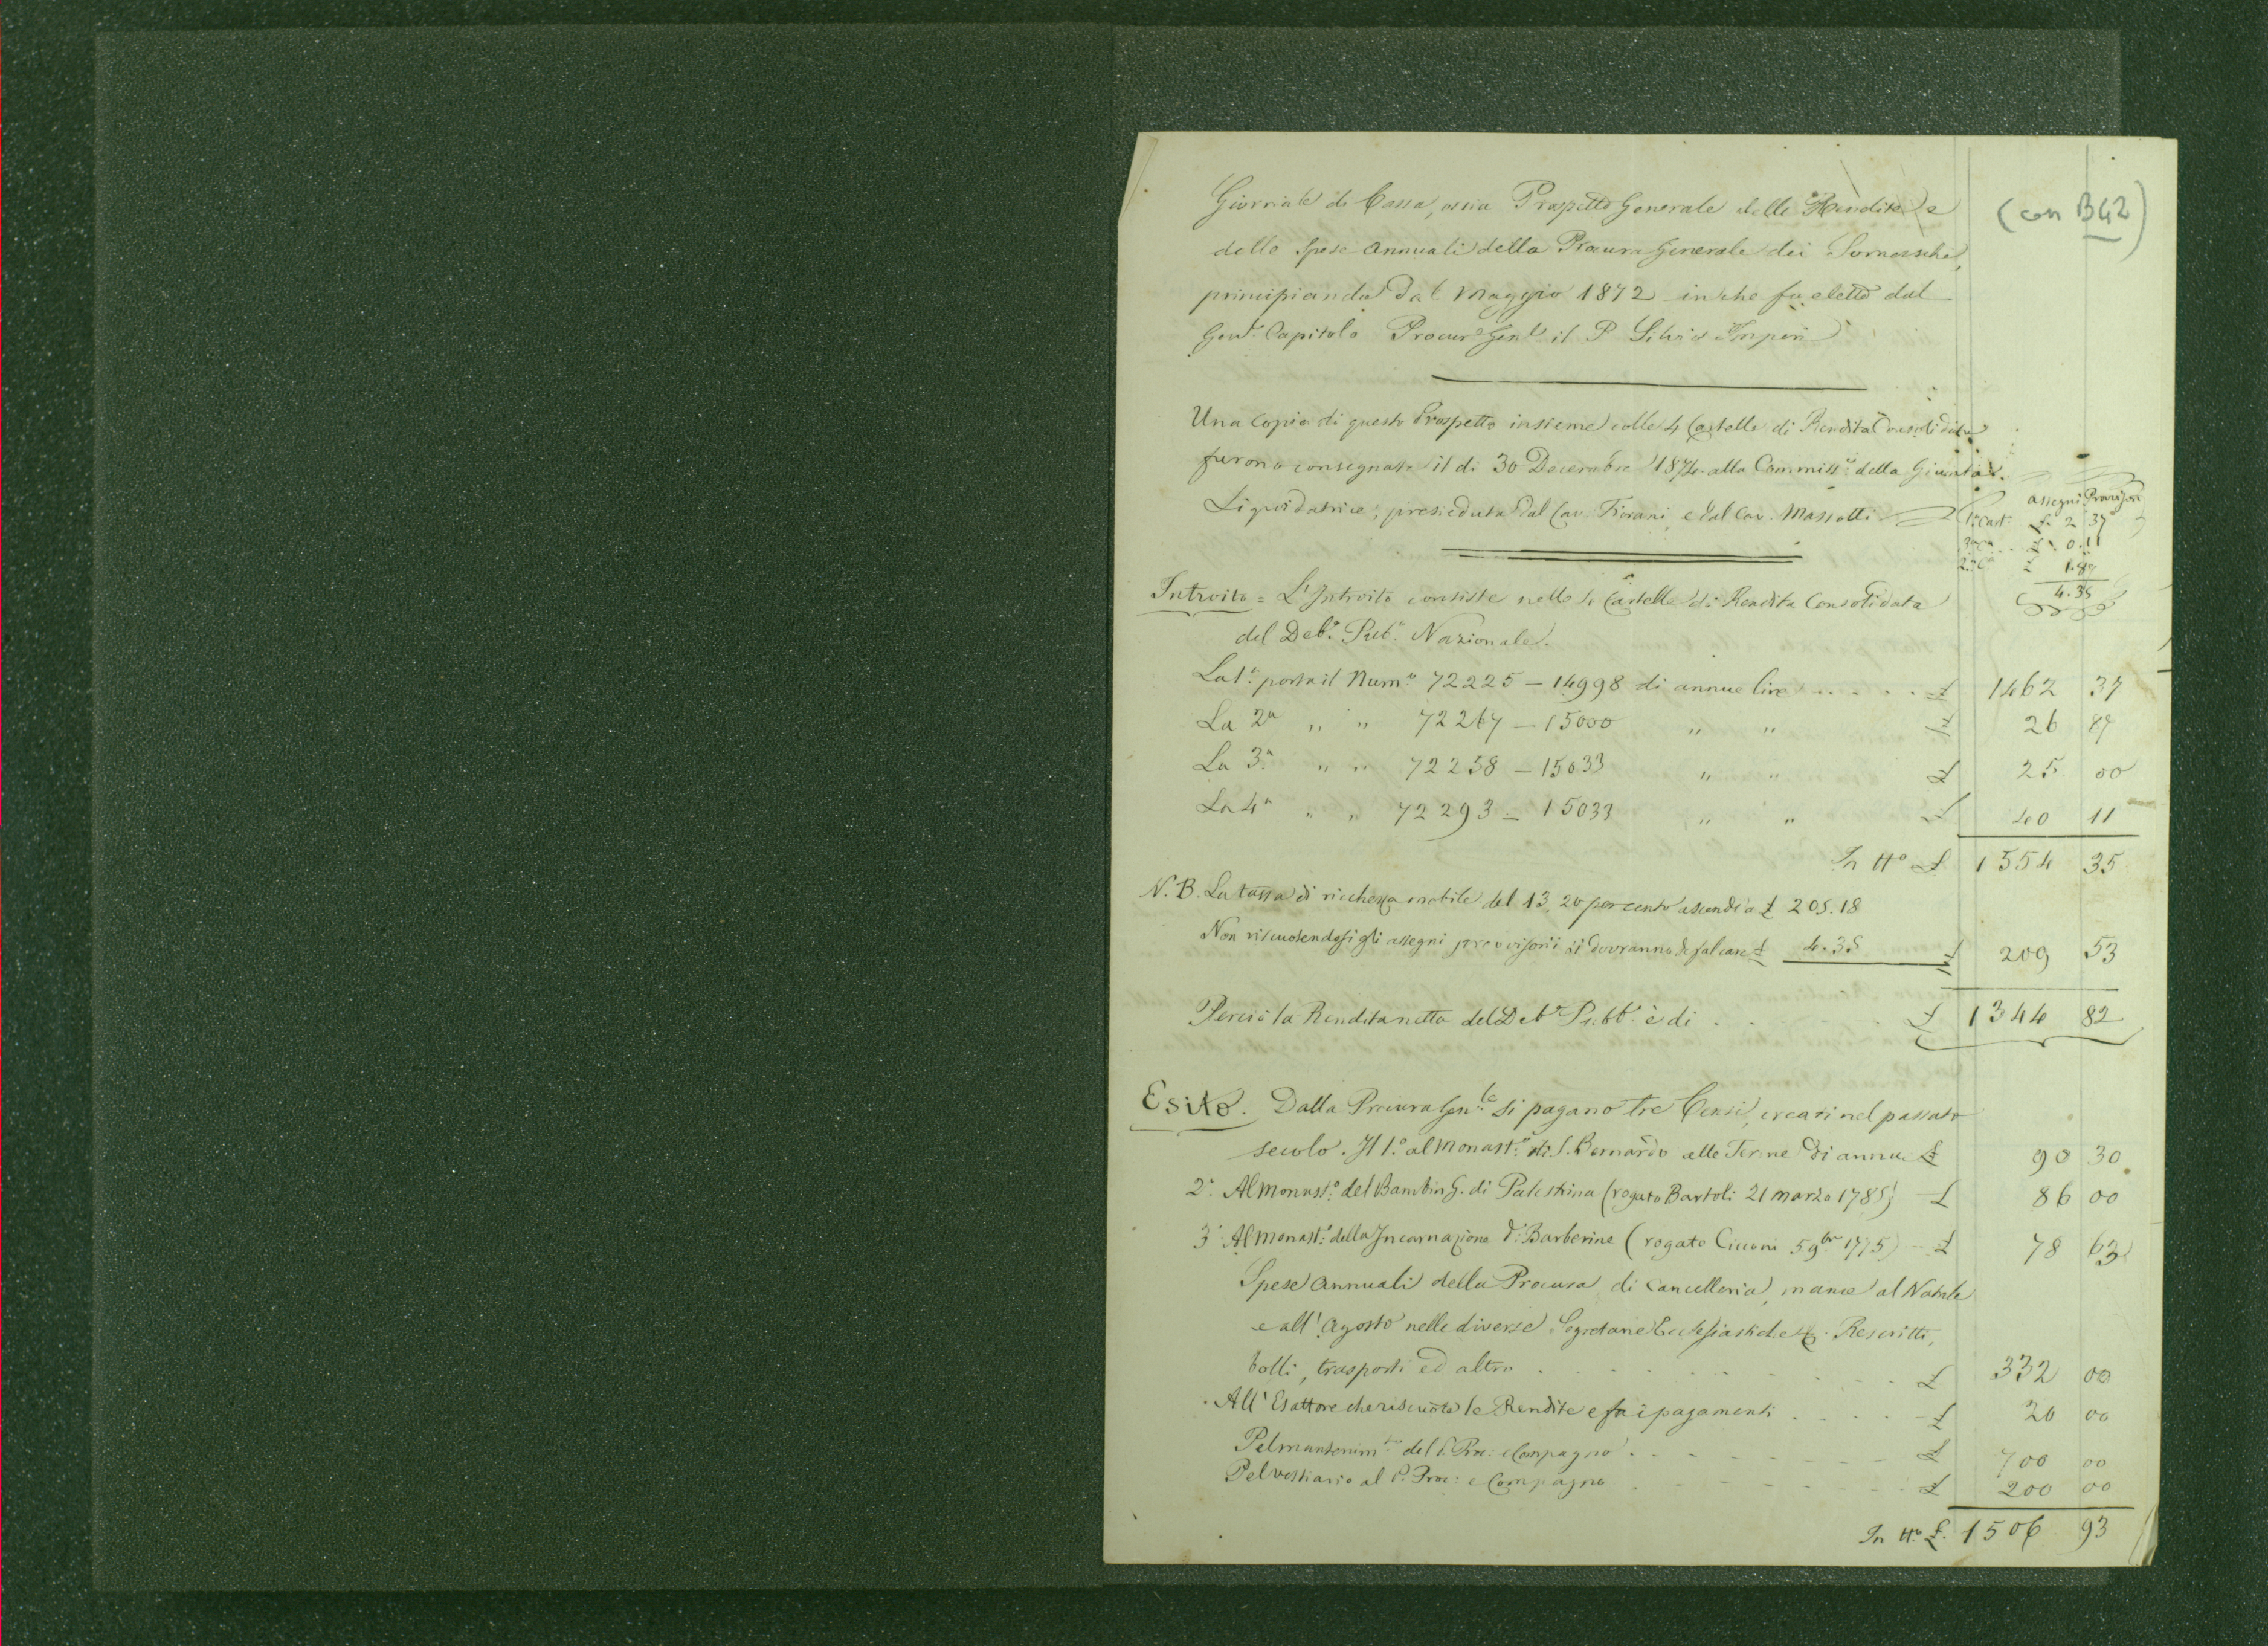 Giornale di Cassa, ossia Prospetto Generale delle Rendite e
(con B42)
delle Spese annuali della Procura Generale dei Somaschi,
principiando dal Maggio 1872 in che fu eletto dal
Genl. Capitolo Procurr Genle il P. Silvio Imperi
Una copia di questo Prospetto insieme colle 4 Cartelle di Rendita Consolidata
furono consegnate il di 30 Decembre 1874 alla Commisse della Giunta
Liquidatrice, presieduta dal Cav. Fiorani, e dal Cav. Massotti.
assegni Provisori
1a Cart. £. 2 37
£. 0.11
2a Ca £ 1.87
4.35
Introito = L'Introito consiste nelle 4 Cartelle di Rendita Consolidata
del Debo Pubo Nazionale.
La 1a porta il Numo 72225 — 14998 di annue lire ..... £ 1462 37
La 2a " " 72267 — 15000 " " £ 26 87
La 3a " " 72258 — 15033 " " £ 25 00
La 4a " " 72293 — 15033 " " £ 40 11
In tto £ 1554 35
N.B. La tassa di ricchezza mobile del 13,20 per cento ascende a £ 205.18
Non riscuotendosi gli assegni provvisorii si dovranno defalcare £ 4.35 £ 209 53
Perciò la Rendita netta del Debo Pubbo è di . . . . £ 1344 82
Esito. Dalla Procura Genle si pagano tre Censi, creati nel passato
secolo. Il 1o al Monasto di S. Bernardo alle Terme di annue £ 90 30
2o Al Monasto del Bambin G. di Palestrina (rogato Bartoli 21 marzo 1785) £ 86 00
3o Al Monasto della Incarnazione d: Barberine (rogato Cicconi 5 9bre 1775) £ 78 63
Spese annuali della Procura di Cancelleria, mance al Natale
e all'Agosto nelle diverse Segretarie Ecclesiastiche &. Rescritti,
bolli, trasporti ed altro . . . . £ 332 00
All'Esattore che riscuote le Rendite e fa i pagamenti . . . . £ 20 00
Pel mantenimto del P. Proc: e Compagno . . . . £ 700 00
Pel vestiario al P. Proc: e Compagno . . . . £ 200 00
In tto £. 1506 93